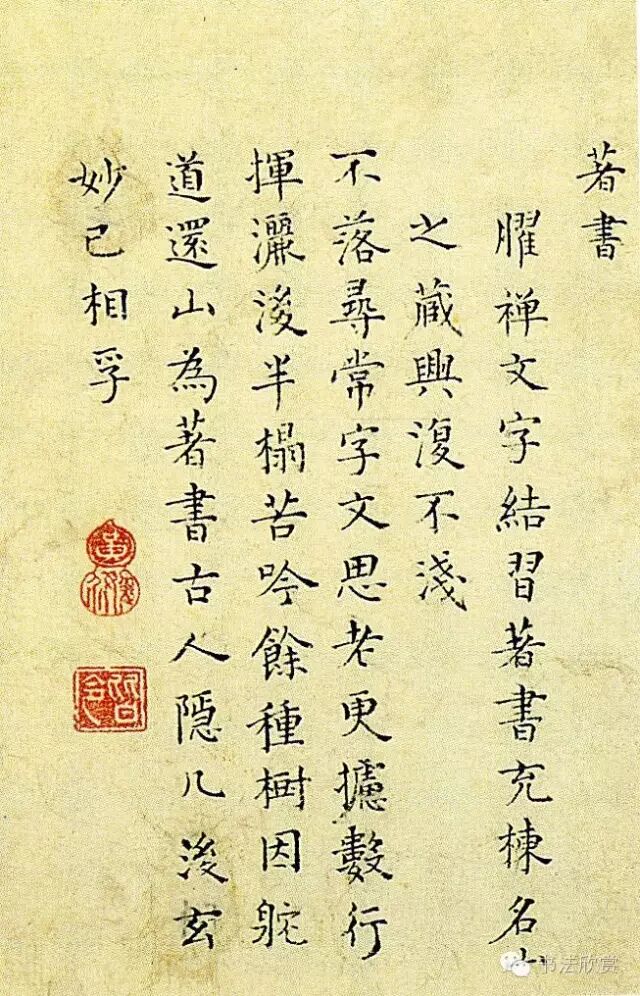 著書
臞禅文字結習著書充棟名山
之蔵興復不淺
不落尋常字文思老更攄數行
揮灑後半榻苦吟餘種樹因
道還山為著書古人隠几後玄
妙已相孚
书法欣赏